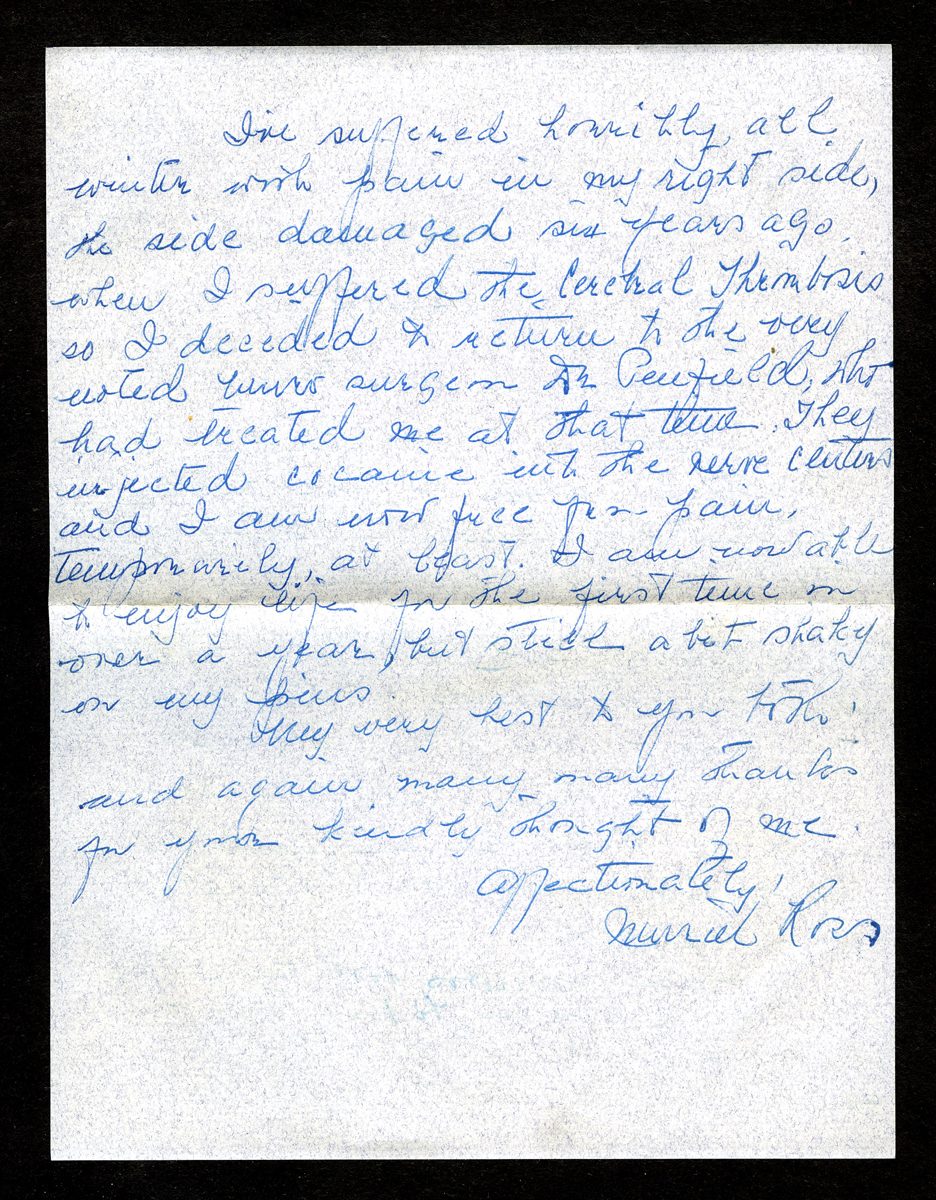 I've suffered horribly, all
winter with pain in my right side,
the side damaged six years ago,
when I suffered the Cerebral Thrombosis
so I decided to return to the very
noted neuro surgeon Dr Penfield, who
had treated me at that time. They
injected cocaine into the nerve centers
and I am now free from pain,
temporarily, at least. I am now able
to enjoy life for the first time in
over a year, but still a bit shaky
on my pins.
My very best to you both!
and again many, many thanks
for your kindly thought of me.
Affectionately,
Murriel Ross